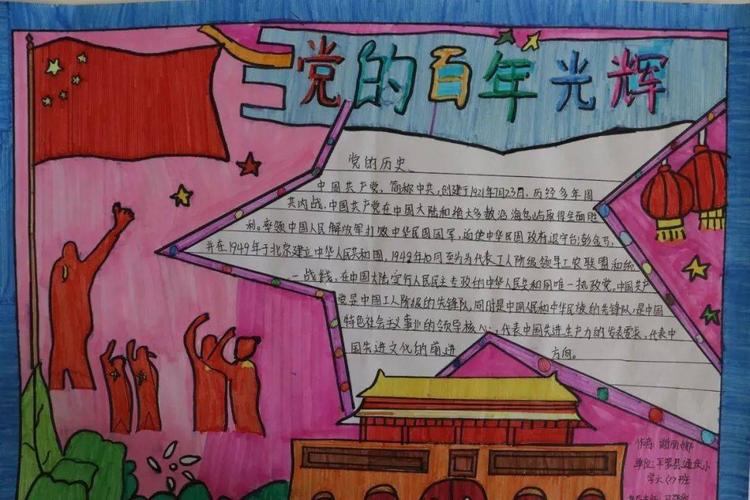 党的百年光辉
党的历史
中国共产党，简称中共，创建于1921年7月23月，历经多年国
共内战，中国共产党在中国大陆和绝大多数沿海岛屿取得全面胜
利。率领中国人民解放军打败中华民国国军，迫使中华民国政府退守台
并在1949年于北京建立中华人民共和国，1949年10月至今为代表工人阶级领导工农联盟和统
一战线，在中国大陆实行人民民主专政的中华人民共和国唯一执政党，中国共产
党是中国工人阶级的先锋队，同时是中国人民和中华民族的先锋队，是中国
特色社会主义事业的领导核心，代表中国先进生产力的发展要求，代表中
国先进文化的前进 方向。
作者：
单位：平罗县